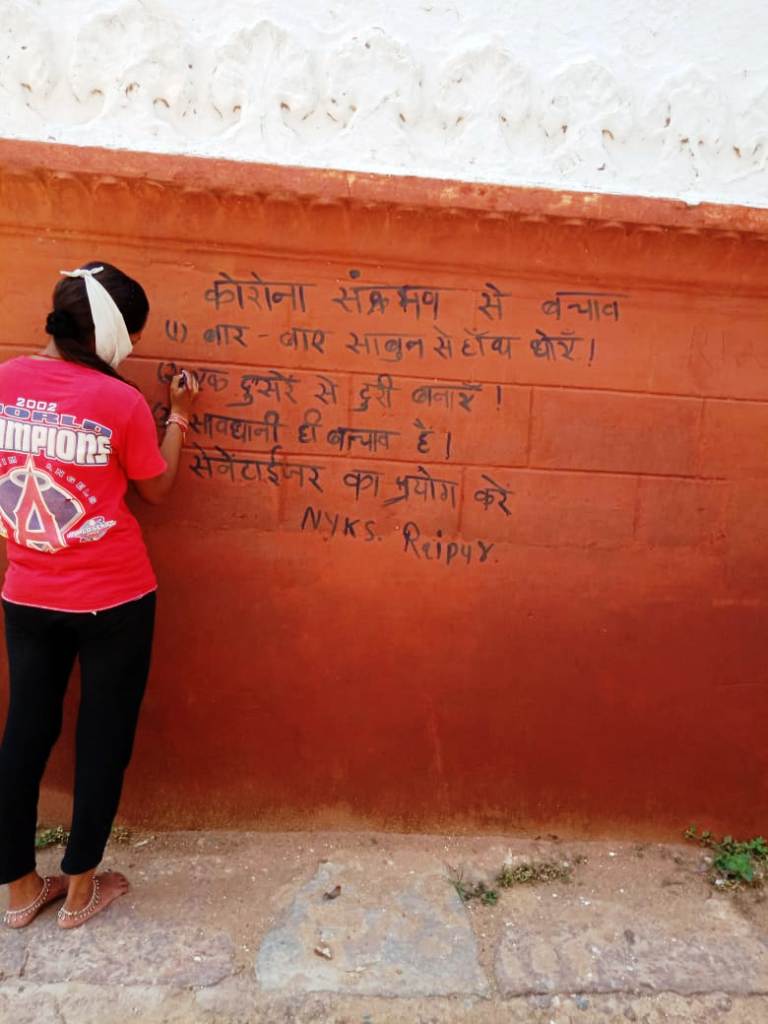 2002
WORLD
CHAMPIONS
ANGELS
A
कोरोना संक्रमण से बचाव
(1) बार - बार साबुन से हाँथ धोएँ!
(2) एक दुसरें से दुरी बनाएँ !
सावधानी ही बचाव है।
सेनेटाईजर का प्रयोग करें
NYKS. Raipur.